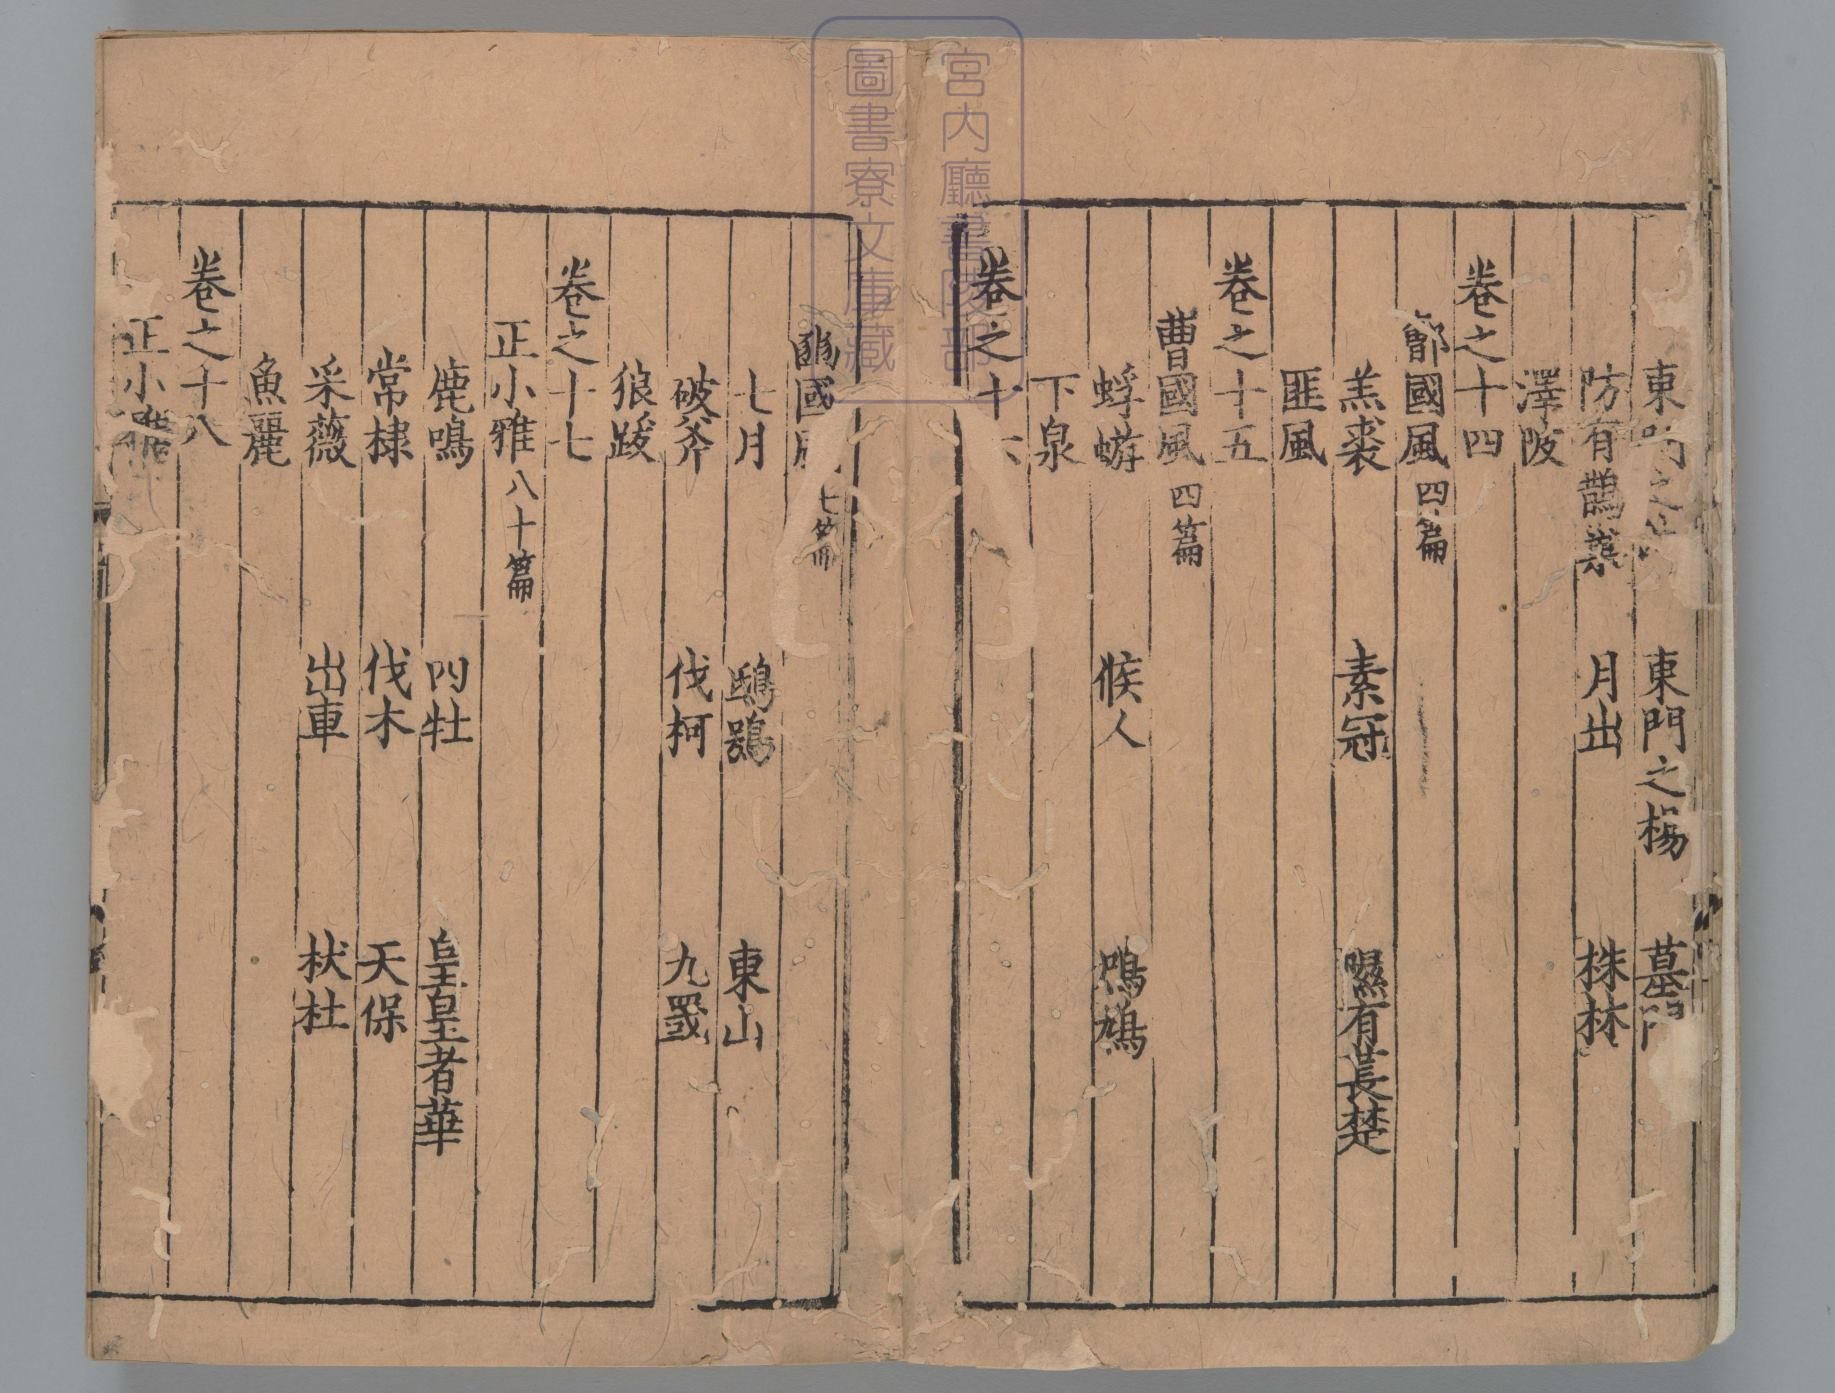 東門之 東門之楊 墓門
防有鵲巢 月出 株林
澤陂
卷之十四
鄶國風 四篇
羔裘 素冠 隰有萇楚
匪風
卷之十五
曹國風 四篇
蜉蝣 候人 鳲鳩
下泉
卷之十六
豳國風 七篇
七月 鴟鴞 東山
破斧 伐柯 九罭
狼跋
卷之十七
正小雅 八十篇
鹿鳴 四牡 皇皇者華
常棣 伐木 天保
采薇 出車 杕杜
魚麗
卷之十八
正小雅
宮内廳書陵部
圖書寮文庫藏